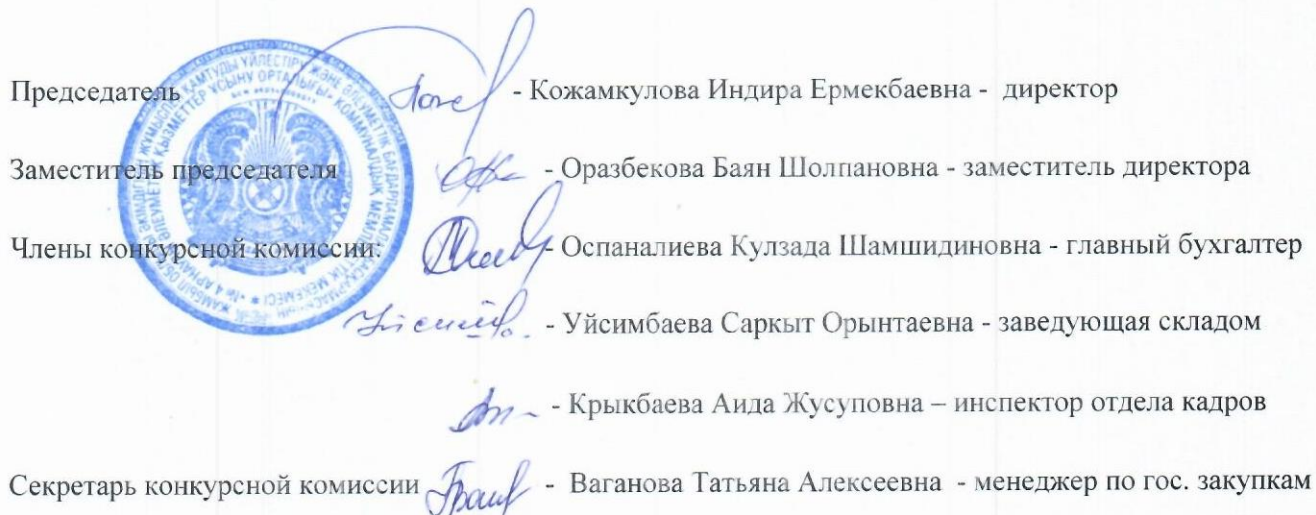 Председатель - Кожамкулова Индира Ермекбаевна - директор
Заместитель председателя - Оразбекова Баян Шолпановна - заместитель директора
Члены конкурсной комиссии: - Оспаналиева Кулзада Шамшидиновна - главный бухгалтер
- Уйсимбаева Саркыт Орынтаевна - заведующая складом
- Крыкбаева Аида Жусуповна – инспектор отдела кадров
Секретарь конкурсной комиссии - Ваганова Татьяна Алексеевна - менеджер по гос. закупкам